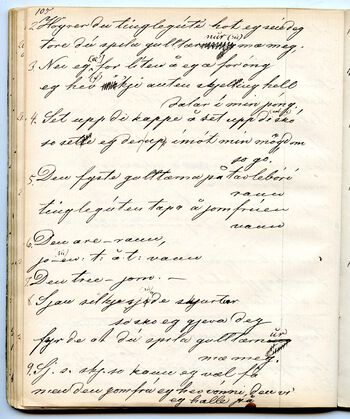 107
2. Höyrer du tinglegúte kot eg seie deg
tore du spela gulltæning mæ meg.
3 Nei eg for liten å ea for ong
eg hev ikkji anten skjeling hell
dalar i min pong.
4. Set upp di kappe å set upp di skó
so sette eg derup imót min mögdom
so go.
5. Den fyste gulltæning på tavlebórd
rann
tinglegúten tapa å jomfrúen
vann
6. Den are – rann,
jo-en: t: å t: vann
7. Den tree – jom. –
8. Sjau silkjesjóde skjurtar
so sko eg gjeva deg
fyr de at du spila gulltæning
mæ meg.
9. Sj. s. skj. so kann eg væl få
men den jomfru eg hev vonne, den vi
eg halle på